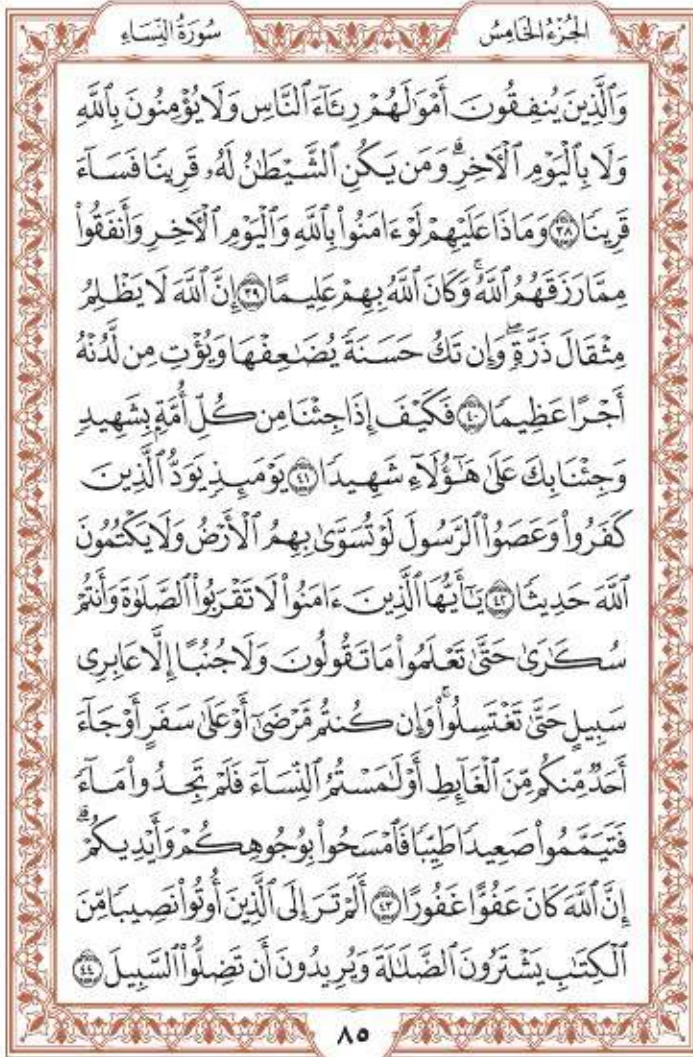 الجُزْءُ الخَامِسُ
سُورَةُ النِّسَاءِ
وَٱلَّذِينَ يُنفِقُونَ أَمْوَٰلَهُمْ رِئَآءَ ٱلنَّاسِ وَلَا يُؤْمِنُونَ بِٱللَّهِ
وَلَا بِٱلْيَوْمِ ٱلْأٓخِرِۗ وَمَن يَكُنِ ٱلشَّيْطَٰنُ لَهُۥ قَرِينٗا فَسَآءَ
قَرِينٗا ٣٨ وَمَاذَا عَلَيْهِمْ لَوْ ءَامَنُوا۟ بِٱللَّهِ وَٱلْيَوْمِ ٱلْأٓخِرِ وَأَنفَقُوا۟
مِمَّا رَزَقَهُمُ ٱللَّهُۚ وَكَانَ ٱللَّهُ بِهِمْ عَلِيمًا ٣٩ إِنَّ ٱللَّهَ لَا يَظْلِمُ
مِثْقَالَ ذَرَّةٖۖ وَإِن تَكُ حَسَنَةٗ يُضَٰعِفْهَا وَيُؤْتِ مِن لَّدُنْهُ
أَجْرًا عَظِيمٗا ٤٠ فَكَيْفَ إِذَا جِئْنَا مِن كُلِّ أُمَّةِۭ بِشَهِيدٖ
وَجِئْنَا بِكَ عَلَىٰ هَٰٓؤُلَآءِ شَهِيدٗا ٤١ يَوْمَئِذٖ يَوَدُّ ٱلَّذِينَ
كَفَرُوا۟ وَعَصَوُا۟ ٱلرَّسُولَ لَوْ تُسَوَّىٰ بِهِمُ ٱلْأَرْضُ وَلَا يَكْتُمُونَ
ٱللَّهَ حَدِيثٗا ٤٢ يَٰٓأَيُّهَا ٱلَّذِينَ ءَامَنُوا۟ لَا تَقْرَبُوا۟ ٱلصَّلَوٰةَ وَأَنتُمْ
سُكَٰرَىٰ حَتَّىٰ تَعْلَمُوا۟ مَا تَقُولُونَ وَلَا جُنُبًا إِلَّا عَابِرِى
سَبِيلٍ حَتَّىٰ تَغْتَسِلُوا۟ۚ وَإِن كُنتُم مَّرْضَىٰٓ أَوْ عَلَىٰ سَفَرٍ أَوْ جَآءَ
أَحَدٞ مِّنكُم مِّنَ ٱلْغَآئِطِ أَوْ لَٰمَسْتُمُ ٱلنِّسَآءَ فَلَمْ تَجِدُوا۟ مَآءٗ
فَتَيَمَّمُوا۟ صَعِيدٗا طَيِّبٗا فَٱمْسَحُوا۟ بِوُجُوهِكُمْ وَأَيْدِيكُمْۗ
إِنَّ ٱللَّهَ كَانَ عَفُوًّا غَفُورًا ٤٣ أَلَمْ تَرَ إِلَى ٱلَّذِينَ أُوتُوا۟ نَصِيبٗا مِّنَ
ٱلْكِتَٰبِ يَشْتَرُونَ ٱلضَّلَٰلَةَ وَيُرِيدُونَ أَن تَضِلُّوا۟ ٱلسَّبِيلَ ٤٤
٨٥